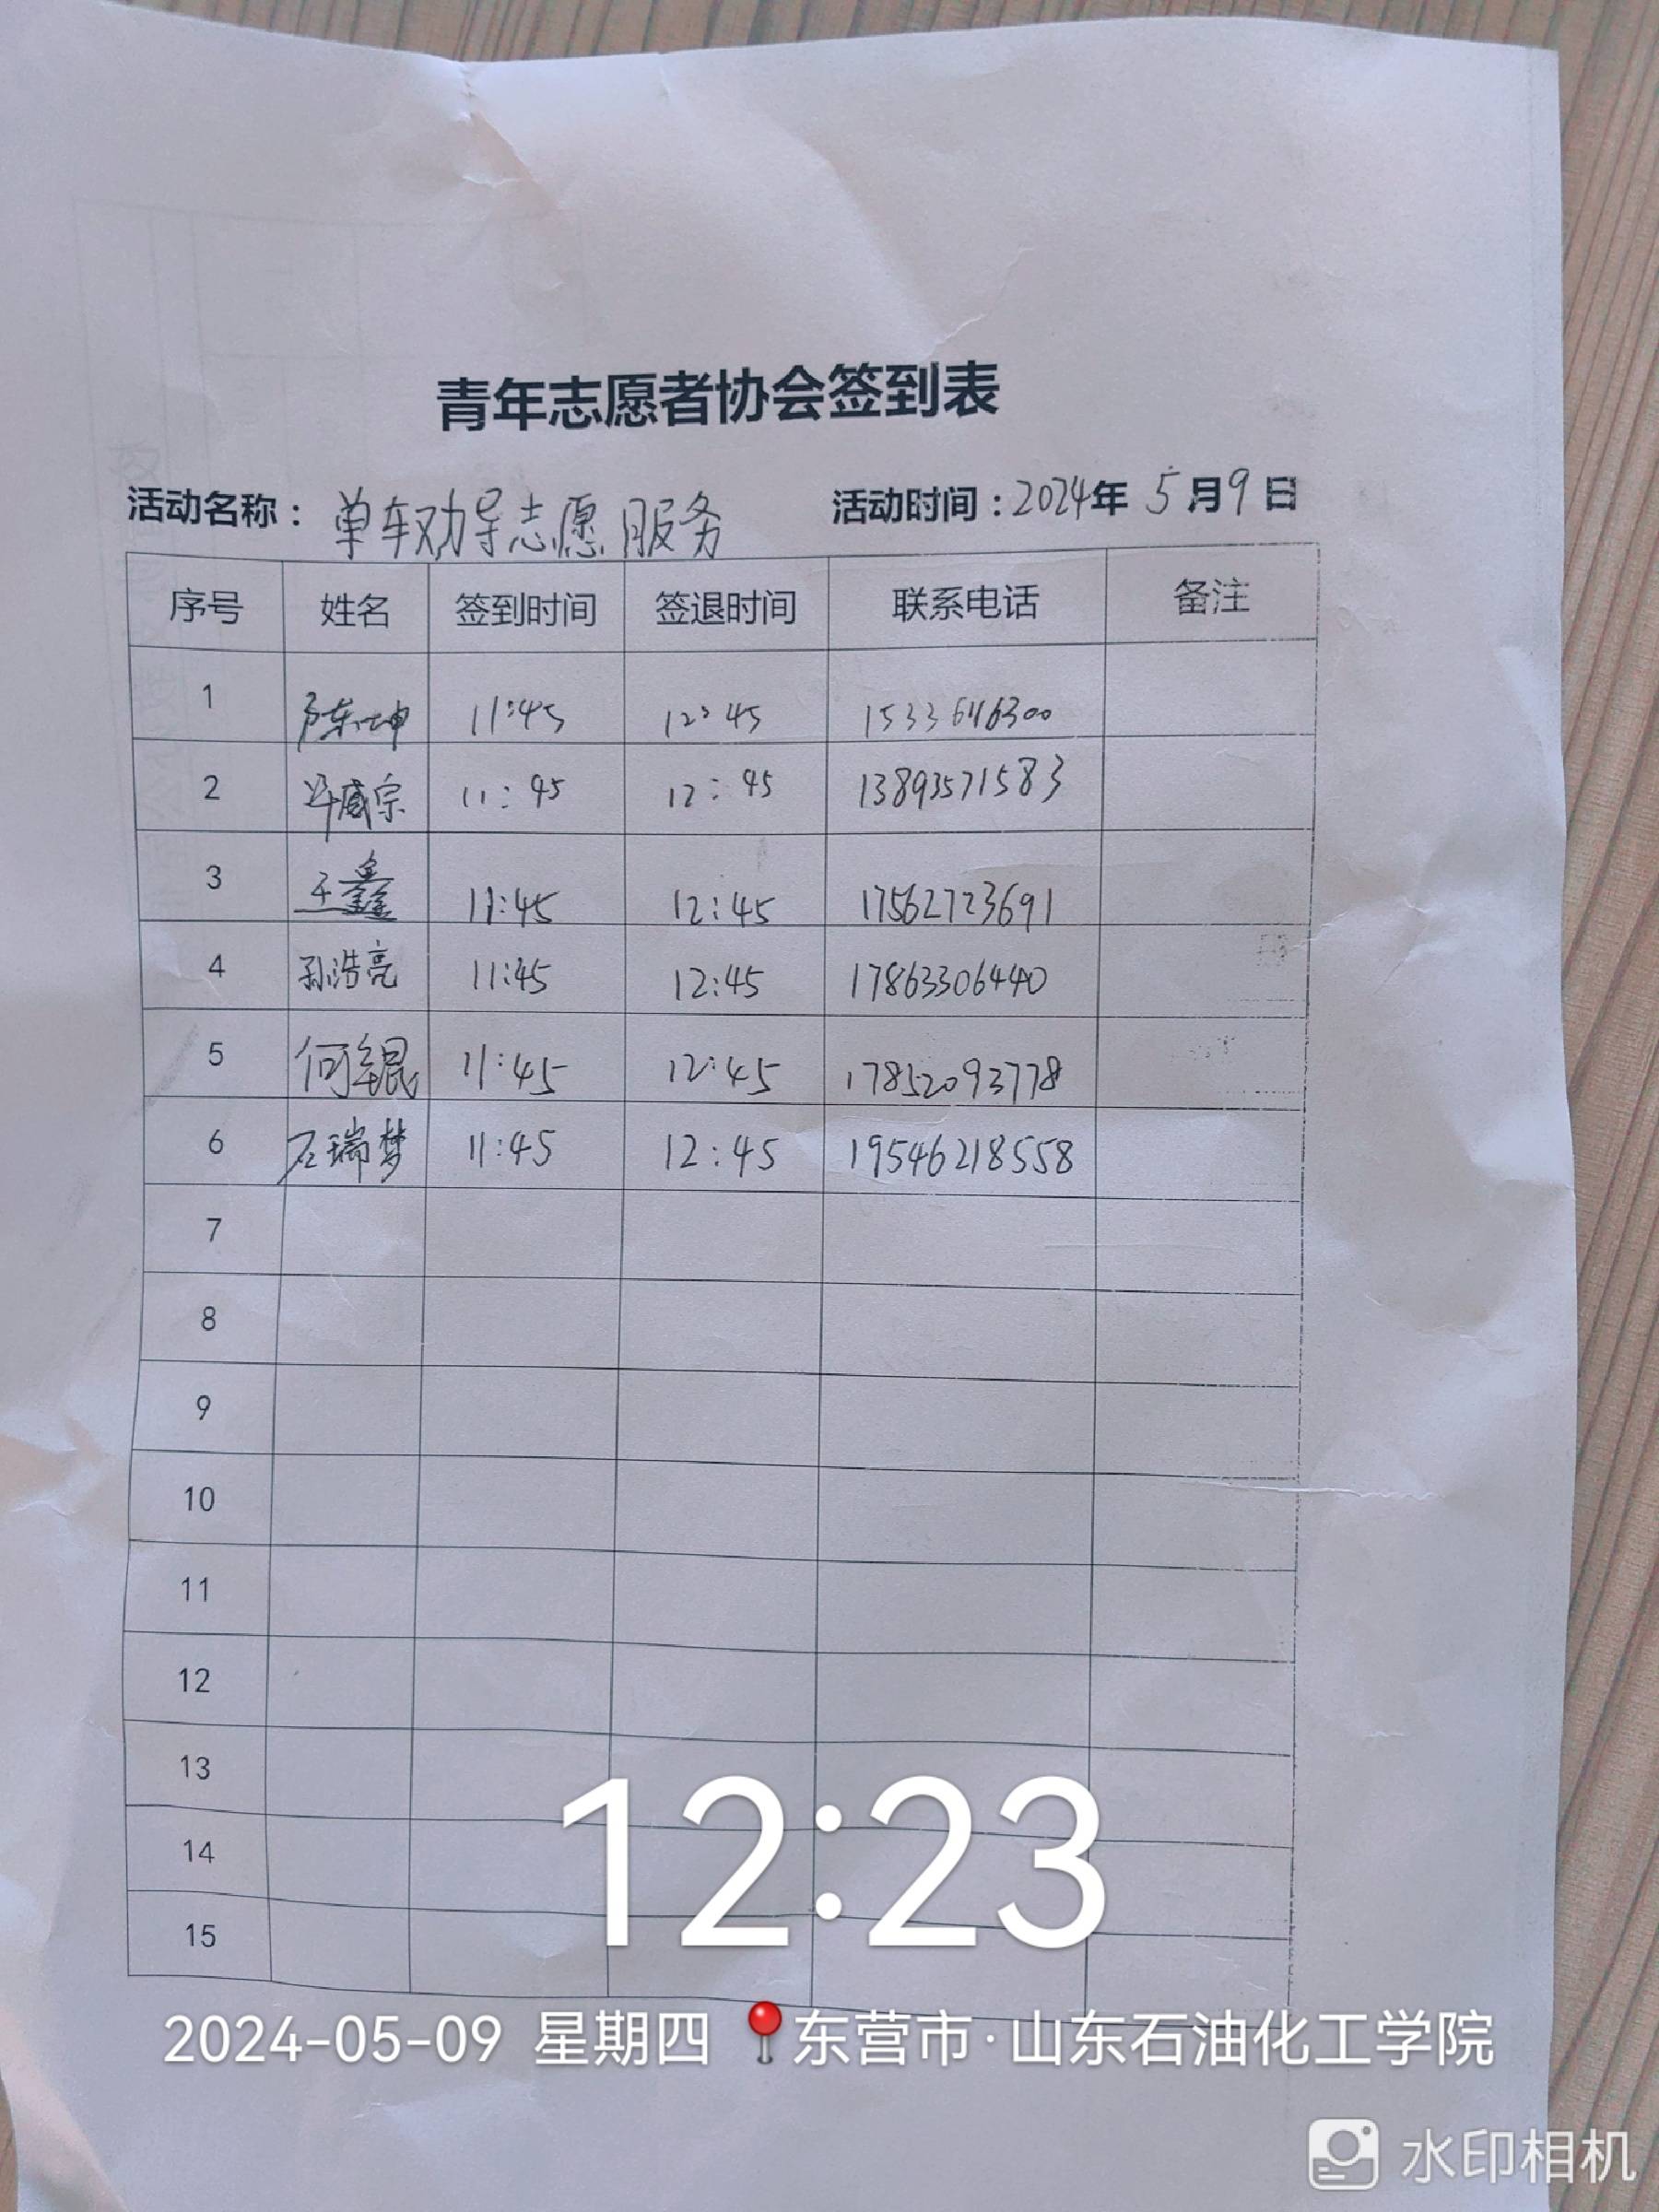 青年志愿者协会签到表
活动名称： 单车劝导志愿服务 活动时间：2024年 5月9日
序号 姓名 签到时间 签退时间 联系电话 备注
1 11:45 12:45
2 11:45 12:45 13893571583
3 王鑫 11:45 12:45 17562723691
4 孙浩亮 11:45 12:45 17863306440
5 何 11:45 12:45 17852093778
6 石瑞梦 11:45 12:45 19546218558
7
8
9
10
11
12
13
14
15
12:23
2024-05-09 星期四 东营市·山东石油化工学院
水印相机